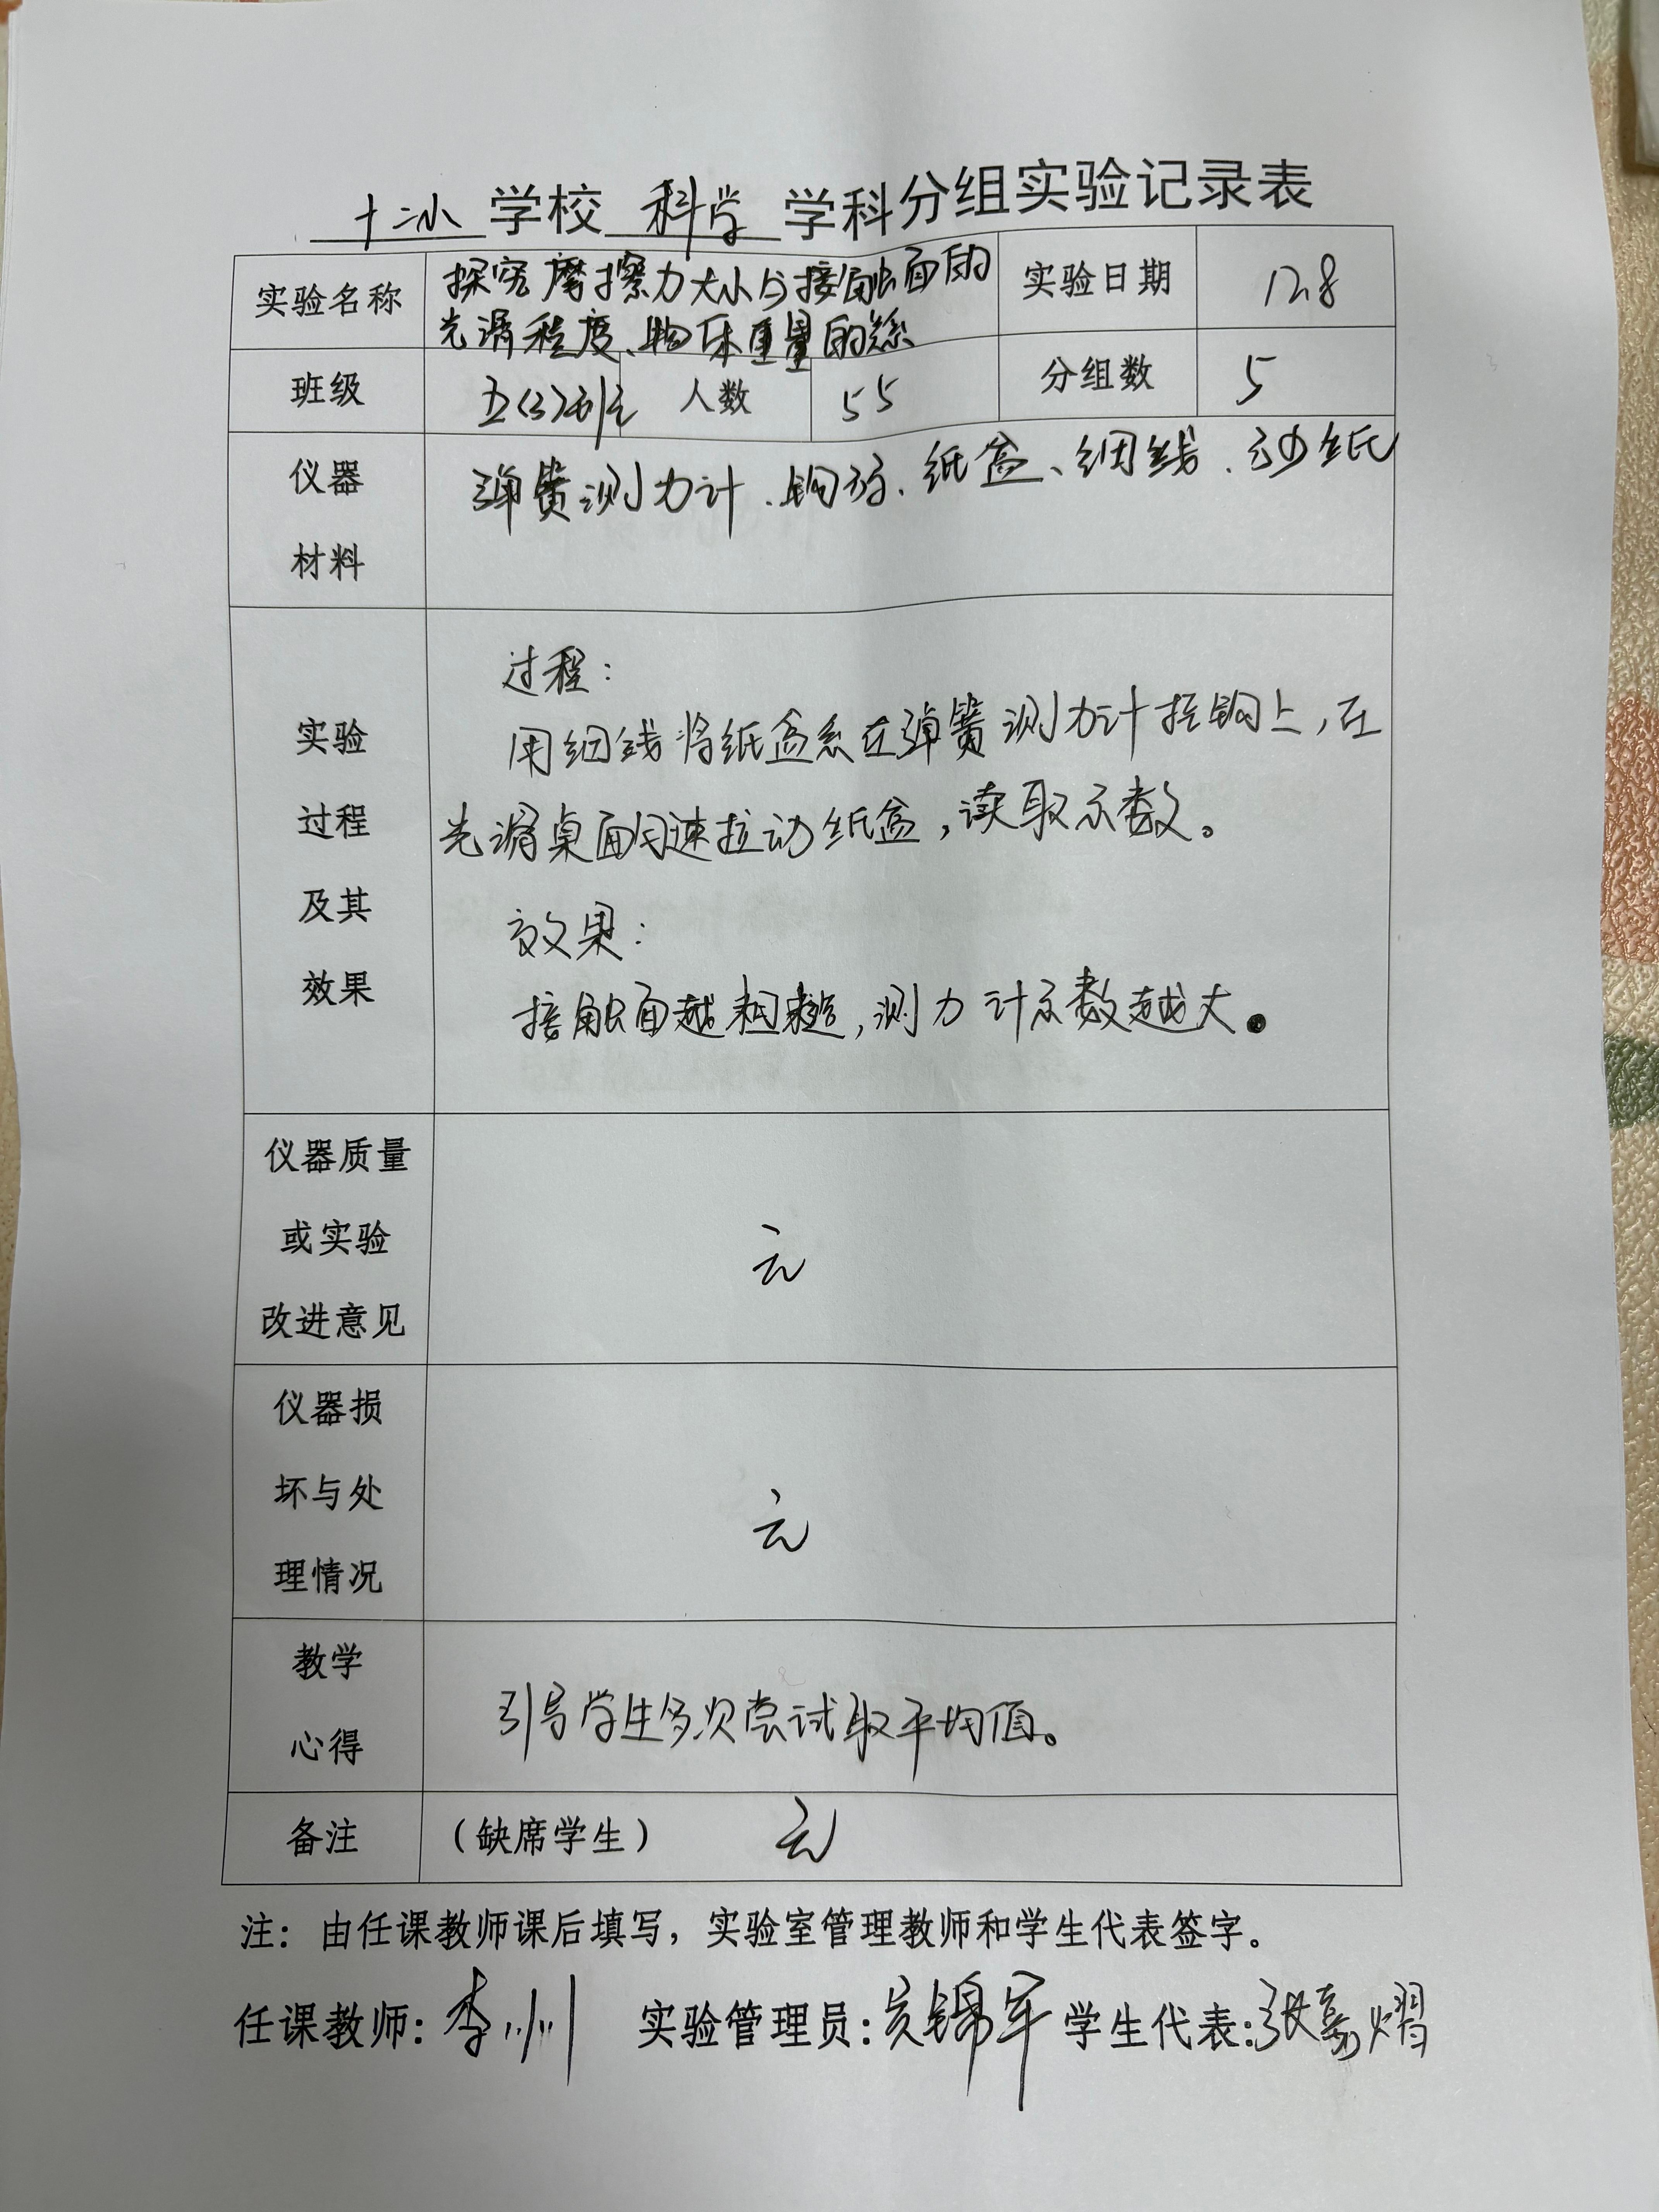 十二小 学校 科学 学科分组实验记录表
实验名称 探究摩擦力大小与接触面的 实验日期 12.8
光滑程度、物体重量的关系
班级 五(3)班 人数 55 分组数 5
仪器 弹簧测力计、钩码、纸盒、细线、砂纸
材料
过程:
实验 用细线将纸盒系在弹簧测力计挂钩上,在
过程 光滑桌面匀速拉动纸盒,读取示数。
及其 效果:
效果 接触面越粗糙,测力计示数越大。
仪器质量
或实验 无
改进意见
仪器损
坏与处 无
理情况
教学
心得 引导学生多次尝试取平均值。
备注 (缺席学生) 无
注:由任课教师课后填写,实验室管理教师和学生代表签字。
任课教师:李川 实验管理员:吴锦军 学生代表:张嘉熠